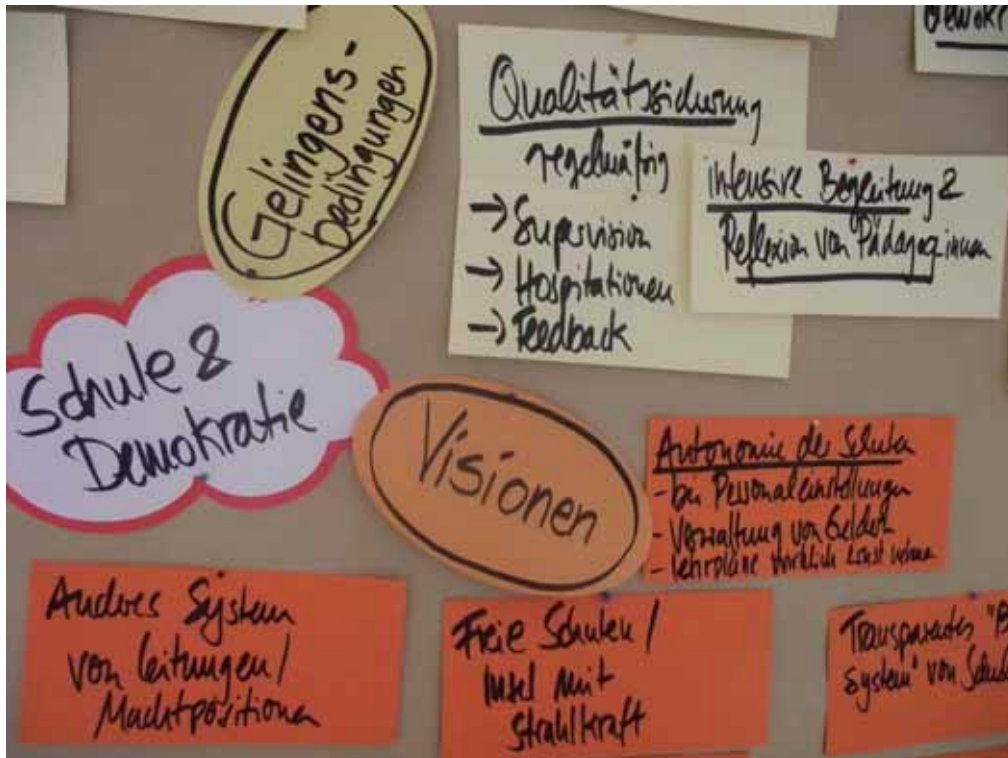 Gelingens-
bedingungen
Qualitätssicherung
regelmäßig
→ Supervision
→ Hospitationen
→ Feedback
intensive Begleitung &
Reflexion von Pädagog:innen
Schule &
Demokratie
Visionen
Autonomie der Schulen
- bei Personaleinstellungen
- Verwaltung von Geldern
- Lehrpläne wirklich ernst nehmen
Anderes System
von Leitungen/
Machtpositionen
Freie Schulen /
Insel mit
Strahlkraft
Transparentes
system" von